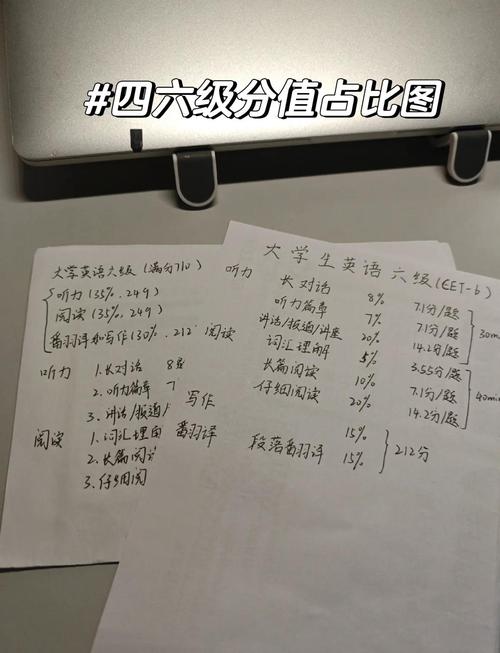 #四六级分值占比图
大学英语六级(满分710)
听力(35%, 249)
阅读(35%, 249)
翻译和写作(30%, 212
听力 1.长对话 8
2.听力篇章 7
3.讲话/报道/
阅读 1.词汇理
2.长篇阅
3.仔细阅
大学生英语六级(CET-6)
听力 长对话 8% 7.1分/题
听力篇章 7% 7.1分/题
讲话/报道/讲座 20% 14.2分/题
30min
阅读 词汇理解 5% 3.55分/题
长篇阅读 10% 7.1分/题
仔细阅读 20% 14.2分/题
40min
写作 15%
翻译 段落翻译 15%
212分